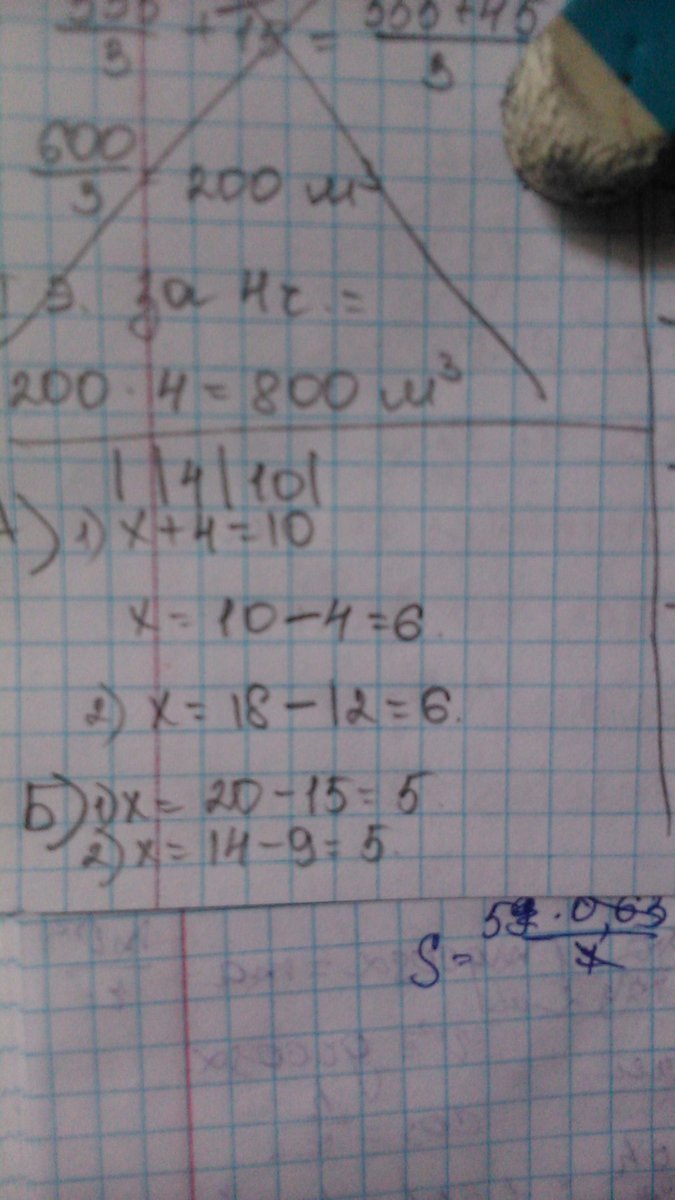 555/3 + 15 = 555+45/3
600/3 = 200 м³
3. за 4ч. =
200 · 4 = 800 м³
| |4|10|
А) 1) x+4=10
x = 10-4=6.
2) x = 18-12=6.
Б) 1) x = 20-15=5
2) x = 14-9=5.
S =